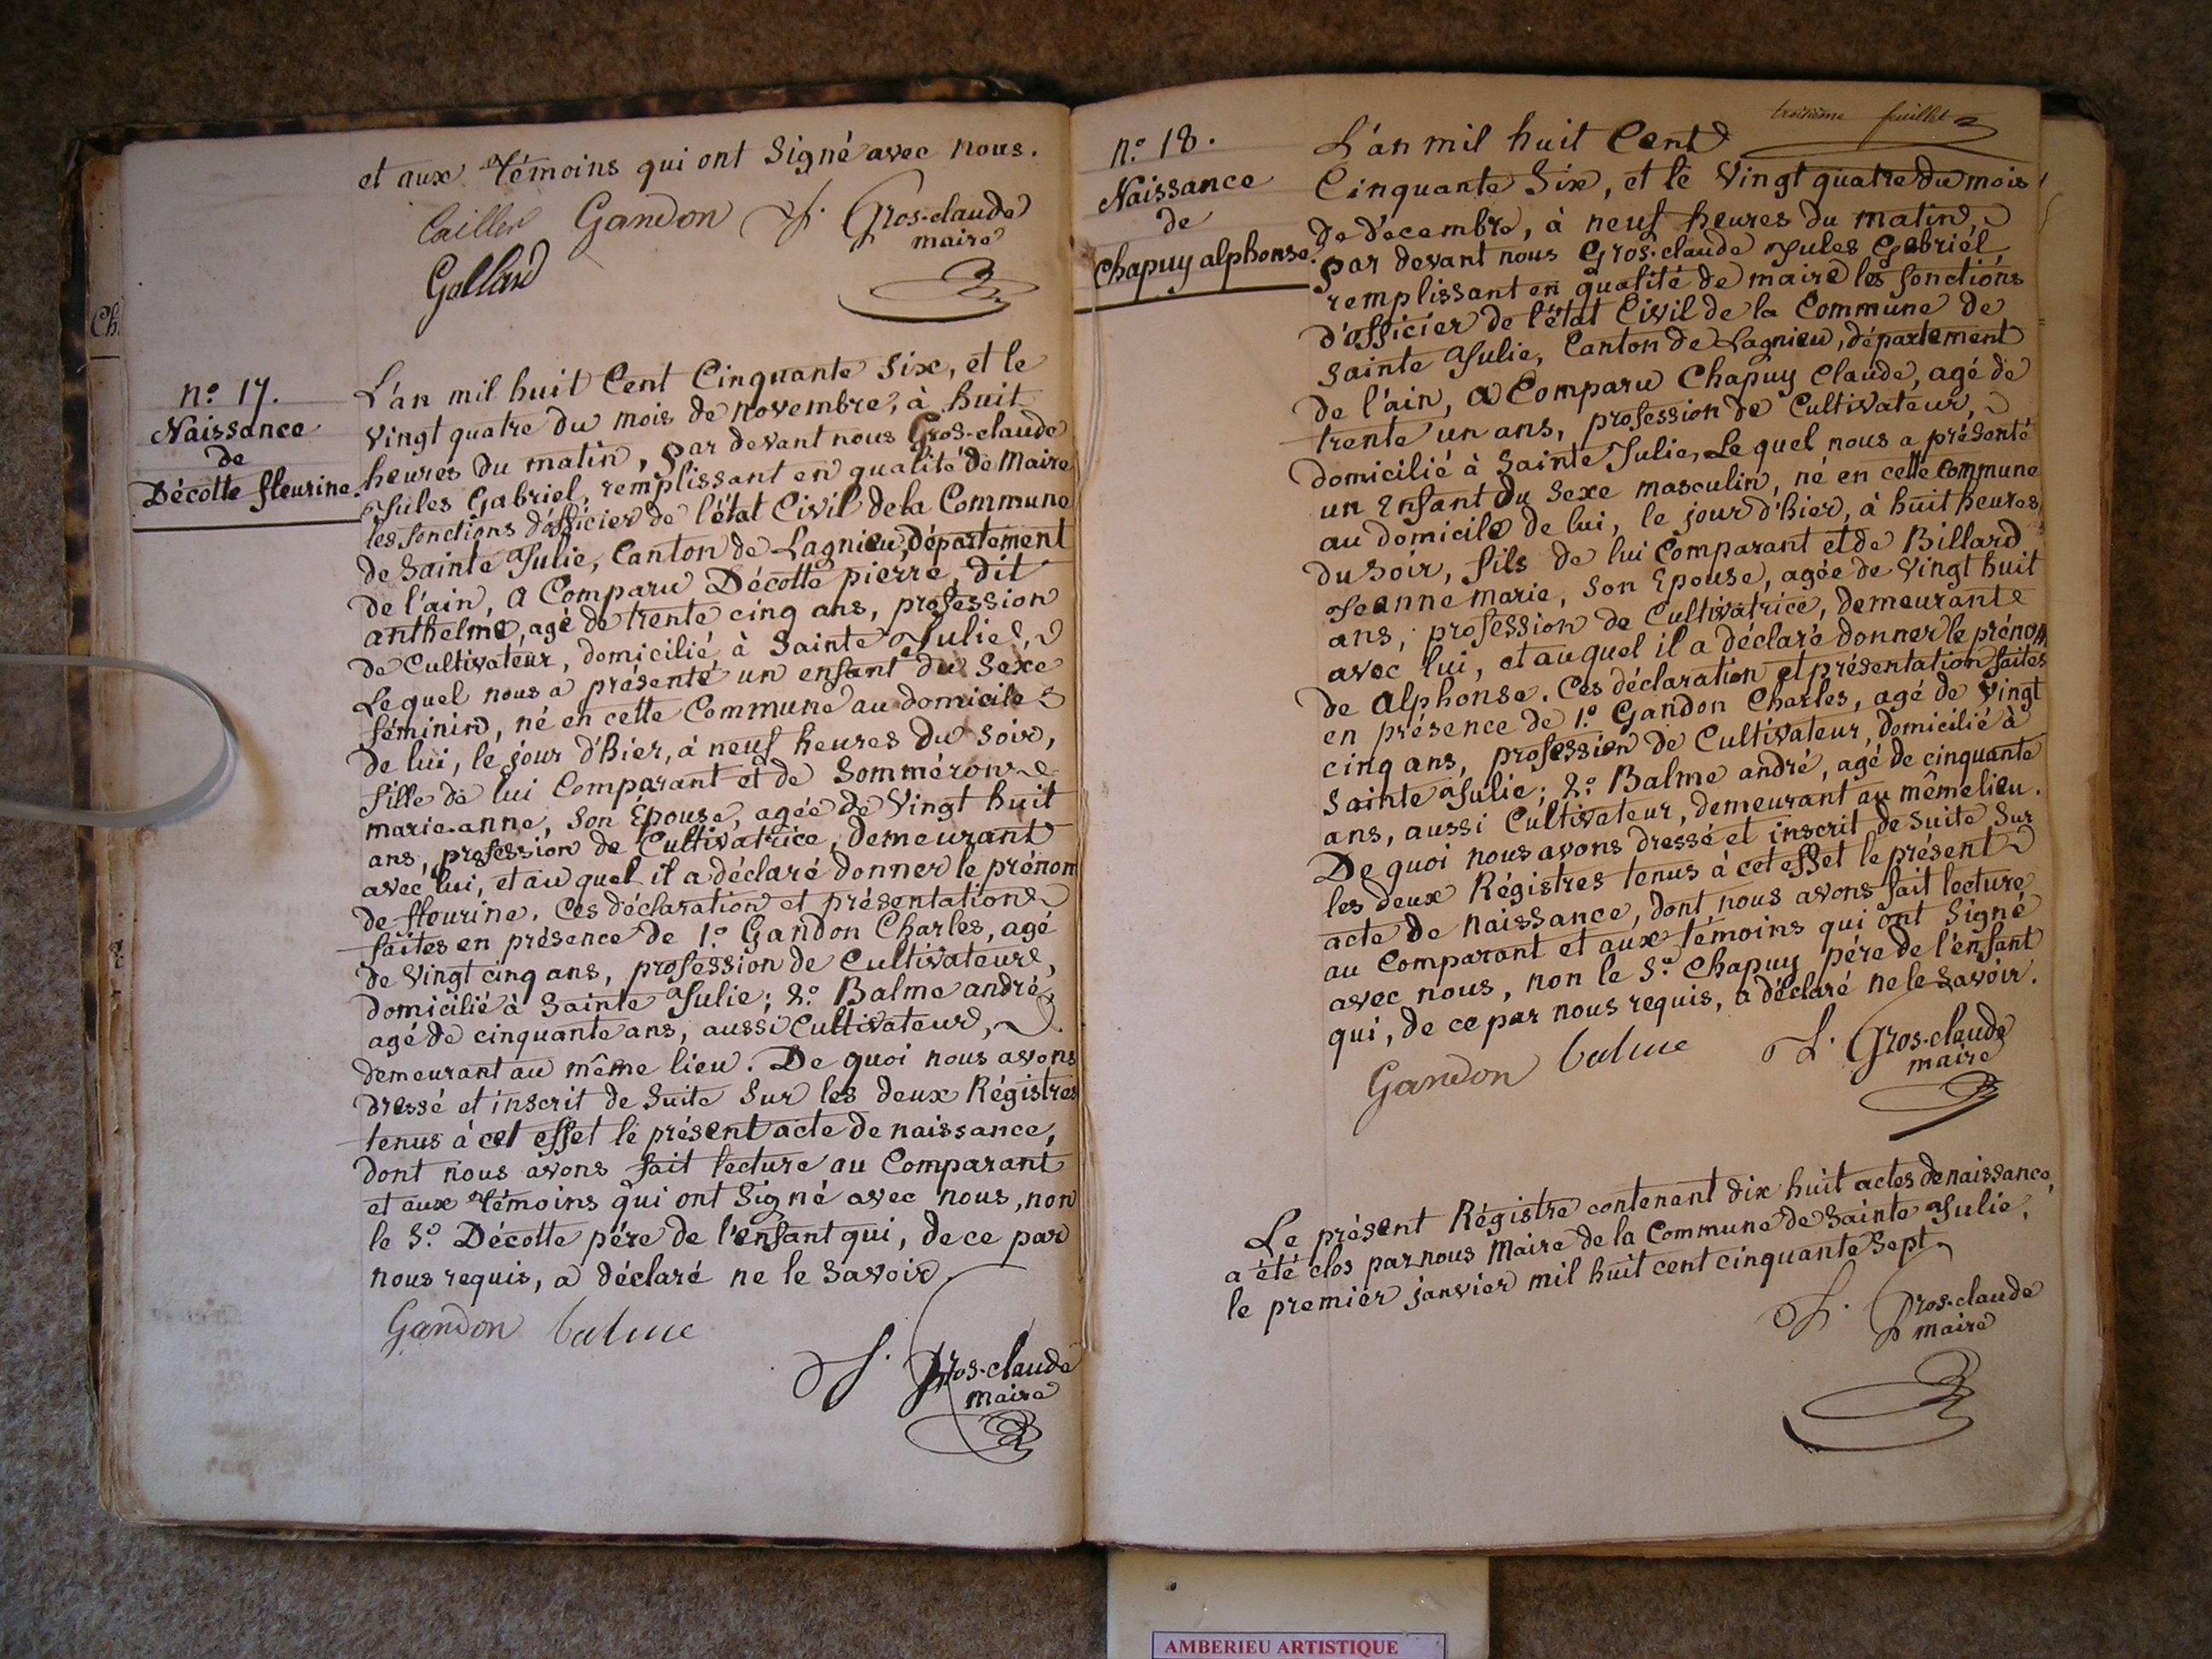 et aux témoins qui ont Signé avec nous.
Cailler Gandon J. Gros-claude
maire
Golland
n.º 17.
Naissance
de
Décotte fleurine.
L'an mil huit Cent Cinquante Six, et le
Vingt quatre du mois de novembre, à huit
heures du matin, par devant nous Gros-claude
Jules Gabriel, remplissant en qualité de Maire
les fonctions d'officier de l'état Civil de la Commune
de Sainte Julie, Canton de Lagnieu, département
de l'ain, a Comparu Décotte pierre, dit
anthelme, agé de trente cinq ans, profession
de Cultivateur, domicilié à Sainte Julie,
Le quel nous a présenté un enfant du Sexe
féminin, né en cette Commune au domicile
de lui, le jour d'hier, à neuf heures du Soir,
fille de lui Comparant et de Somméron
marie-anne, Son Épouse, agée de Vingt huit
ans, profession de Cultivatrice, demeurant
avec lui, et au quel il a déclaré donner le prénom
de fleurine. Ces déclaration et présentation
faites en présence de 1.º Gandon Charles, agé
de Vingt cinq ans, profession de Cultivateur,
domicilié à Sainte Julie; 2.º Balme andré,
agé de cinquante ans, aussi Cultivateur,
demeurant au même lieu. De quoi nous avons
dressé et inscrit de Suite Sur les deux Régistres
tenus à cet effet le présent acte de naissance,
dont nous avons fait lecture au Comparant
et aux témoins qui ont Signé avec nous, non
le S.º Décotte pére de l'enfant qui, de ce par
nous requis, a déclaré ne le Savoir.
Gandon balme
J. Gros-claude
maire
troisième feuillet
n.º 18.
Naissance
de
Chapuy alphonse.
L'an mil huit Cent
Cinquante Six, et le Vingt quatre du mois
de décembre, à neuf heures du matin,
par devant nous Gros-claude Jules Gabriel,
remplissant en qualité de maire les fonctions
d'officier de l'état Civil de la Commune de
Sainte Julie, Canton de Lagnieu, département
de l'ain, a Comparu Chapuy Claude, agé de
trente un ans, profession de Cultivateur,
domicilié à Sainte Julie, Le quel nous a présenté
un Enfant du Sexe masculin, né en cette Commune
au domicile de lui, le jour d'hier, à huit heures
du Soir, fils de lui Comparant et de Billard
Jeanne marie, Son Epouse, agée de Vingt huit
ans, profession de Cultivatrice, demeurante
avec lui, et au quel il a déclaré donner le prénom
de Alphonse. Ces déclaration et présentation faites
en présence de 1.º Gandon Charles, agé de Vingt
cinq ans, profession de Cultivateur, domicilié à
Sainte Julie; 2.º Balme andré, agé de cinquante
ans, aussi Cultivateur, demeurant au même lieu.
De quoi nous avons dressé et inscrit de Suite Sur
les deux Régistres tenus à cet effet le présent
acte de naissance, dont nous avons fait lecture
au Comparant et aux témoins qui ont Signé
avec nous, non le S.º Chapuy pére de l'enfant
qui, de ce par nous requis, a déclaré ne le Savoir.
Gandon balme J. Gros-claude
maire
Le présent Régistre contenant dix huit actes de naissance,
a été clos par nous Maire de la Commune de Sainte Julie,
le premier janvier mil huit cent cinquante Sept.
J. Gros-claude
maire
AMBERIEU ARTISTIQUE